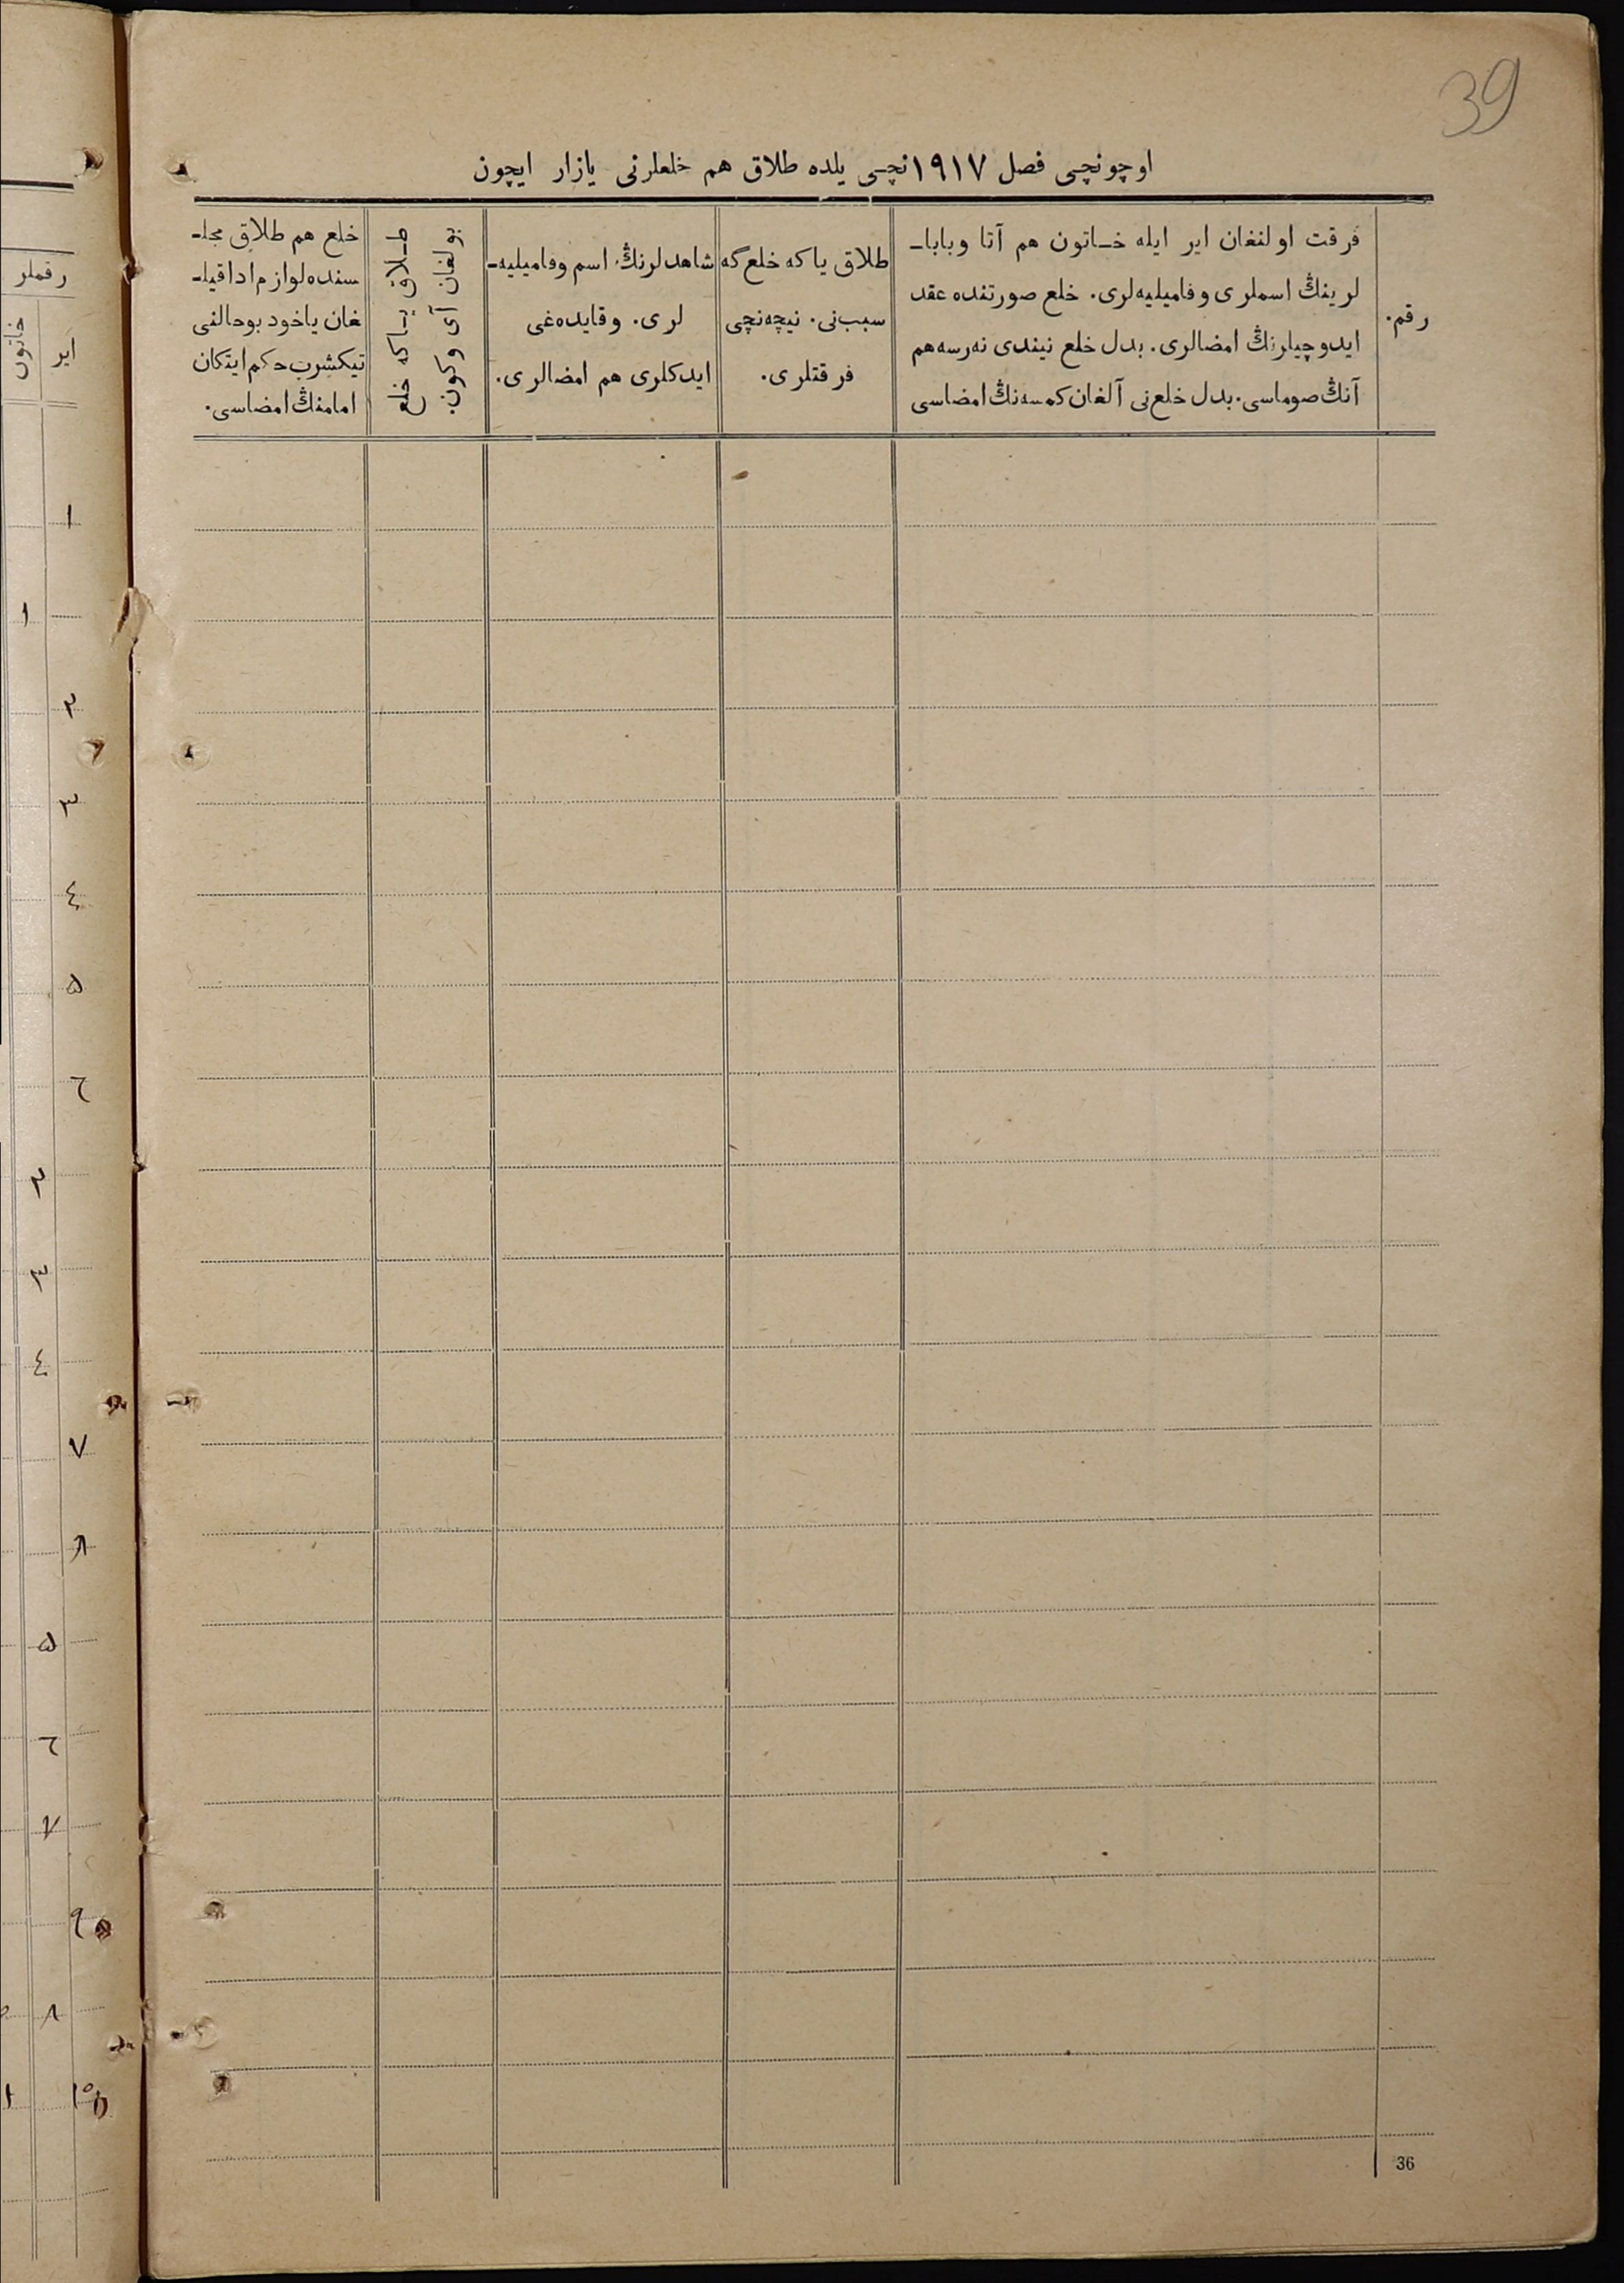 39
اوچونچی فصل ١٩١٧نچی یلده طلاق هم خلعلرنی یازار ایچون
رقم.
فرقت اولنغان ایر ایله خاتون هم آتا وبابا-
لرینڭ اسملری وفامیلیه‌لری. خلع صورتنده عقد
ایدوچیلرنڭ امضالری. بدل خلع نیندی نه‌رسه هم
آنڭ صوماسی. بدل خلع‌نی آلغان کمسه‌نڭ امضاسی
طلاق یاکه خلع‌گه
سبب‌نی. نیچه‌نچی
فرقتلری.
شاهدلرنڭ اسم وفامیلیه-
لری. وقایده‌غی
ایدکلری هم امضالری.
طلاق یاکه خلع
بولغان آی وکون.
خلع هم طلاق مجلـ
سنده لوازم ادا قیلـ
غان یاخود بوحالنی
تیکشرب حکم ایتکان
امامنڭ امضاسی.
36
رقملر
ایر
خاتون
١
١
٢
٣
٤
۵
٦
٢
٣
٤
٧
٨
۵
٦
٧
٩
٨